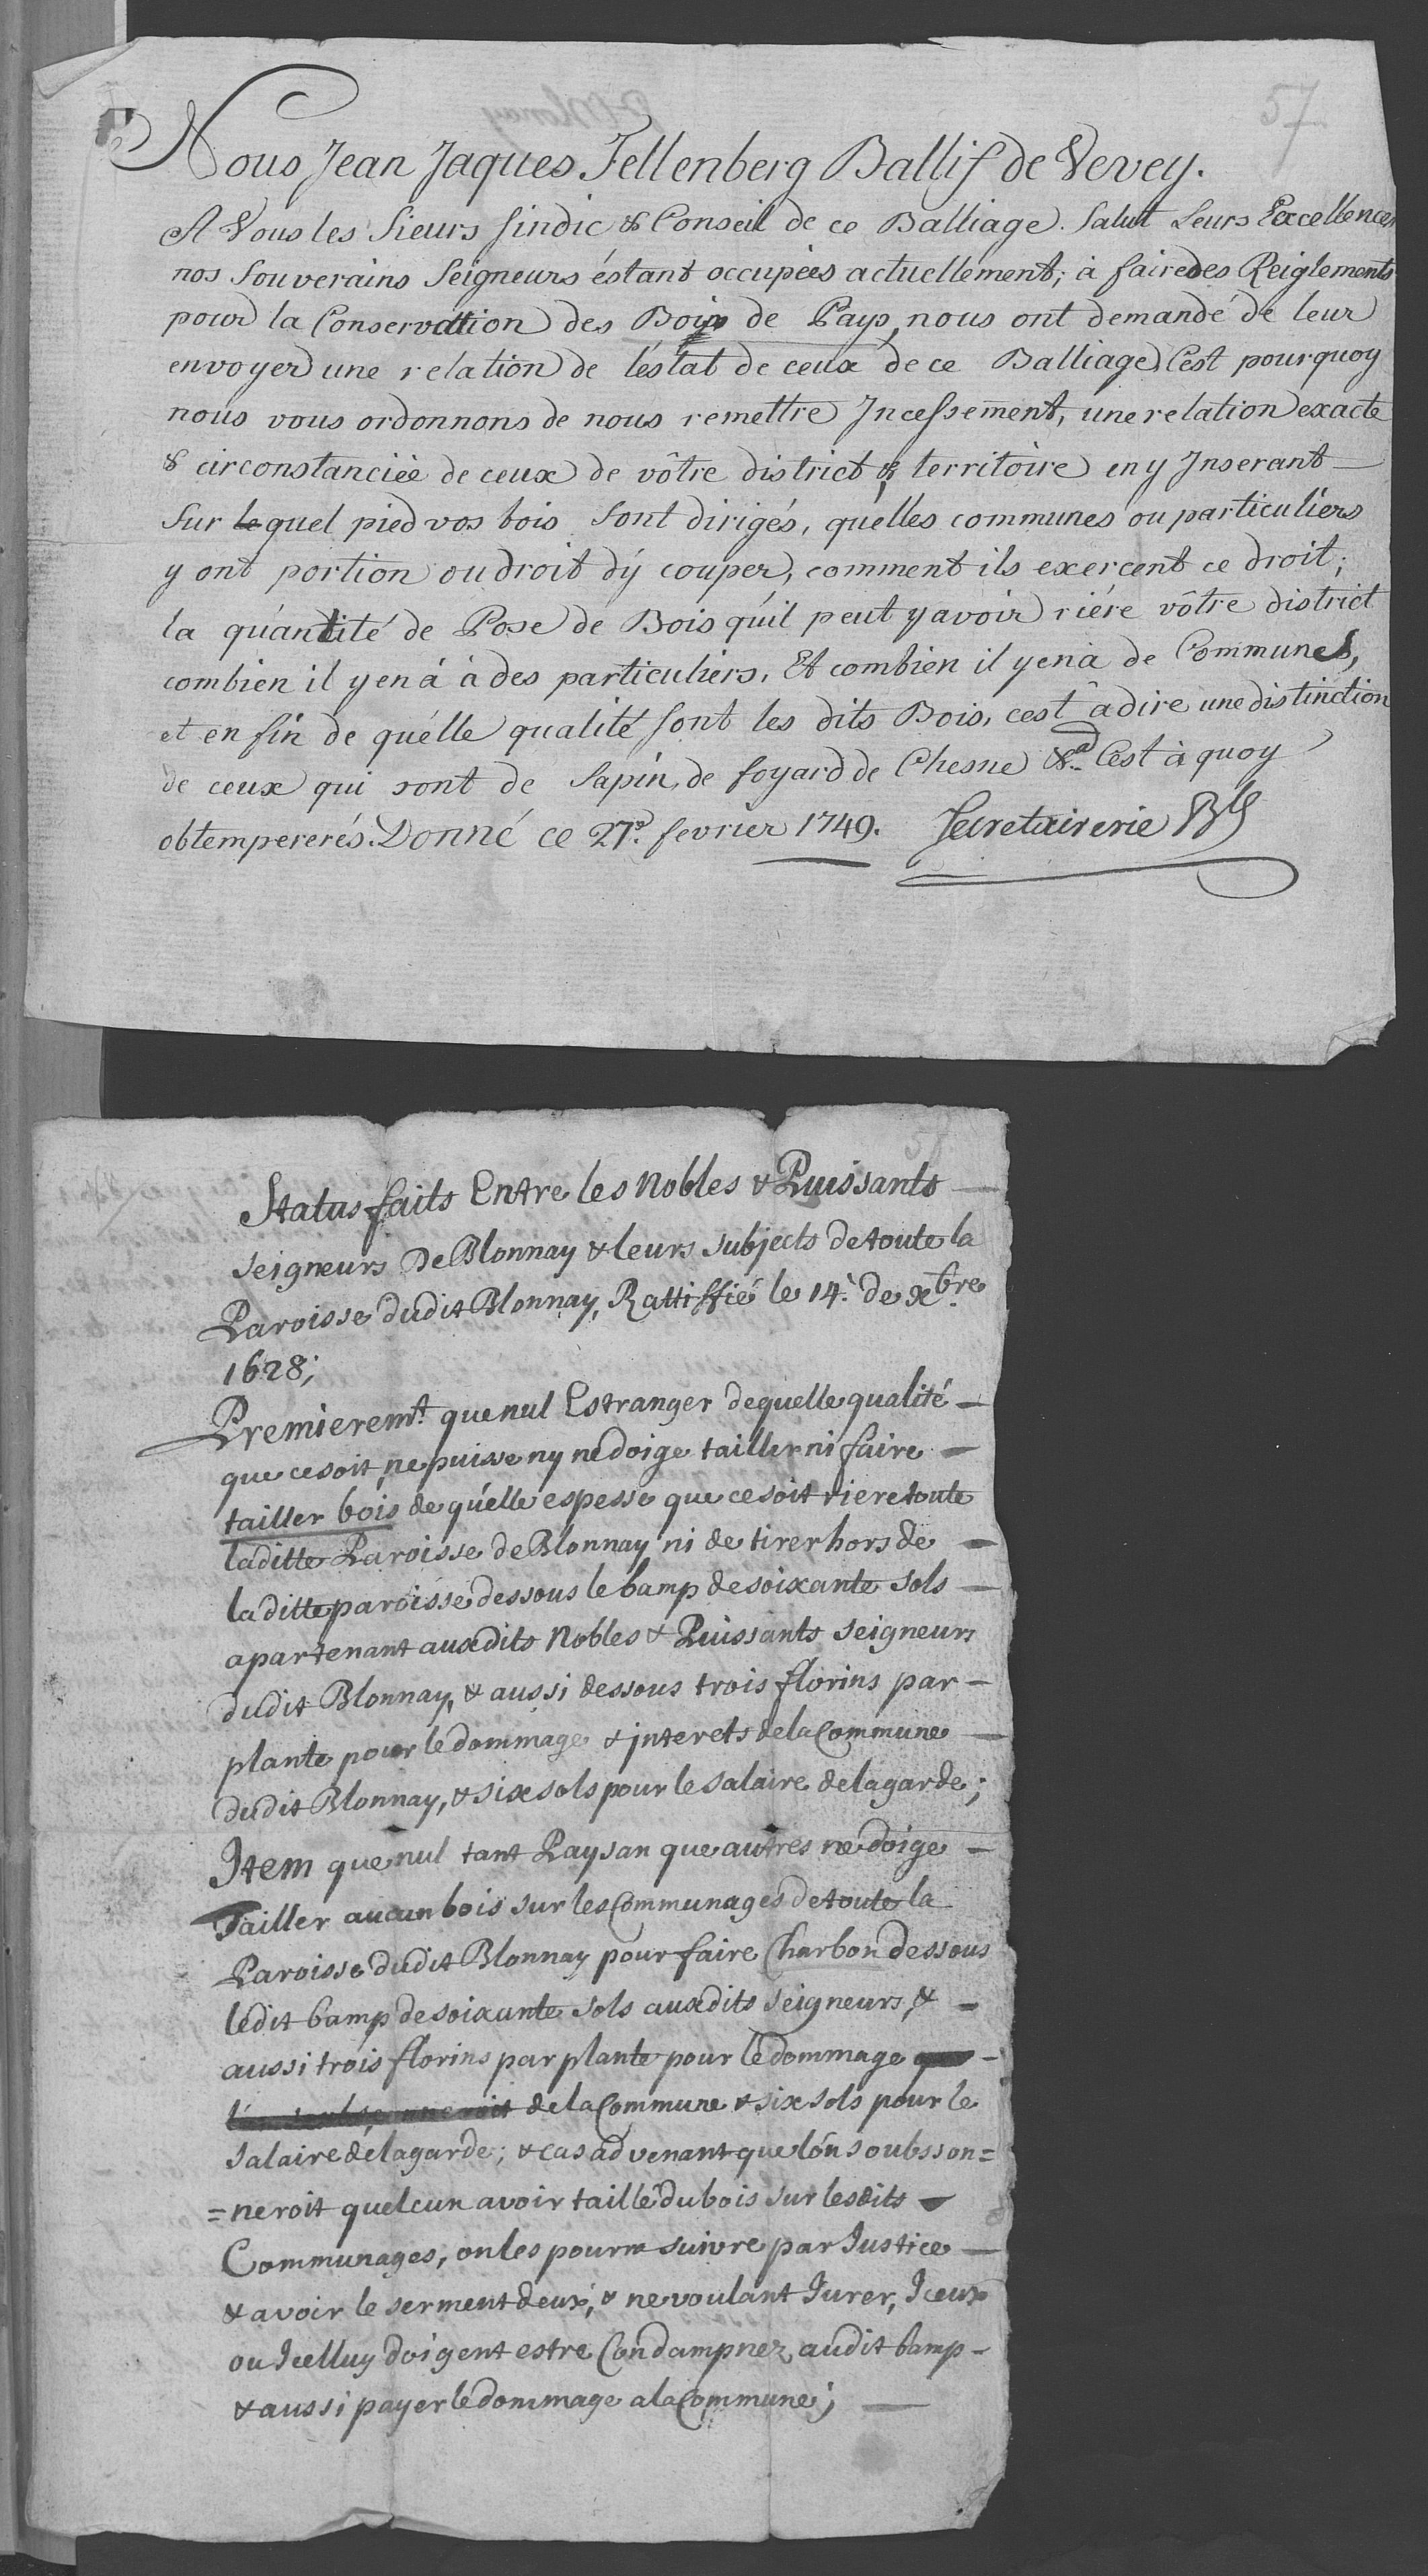 57
Nous Jean Jaques Fellenberg Ballif de Vevey.
A Vous les Sieurs sindic & Conseil de ce Balliage. Salut Leurs Excellences
nos Souverains Seigneurs éstant occupées actuellement; à faire des Reiglements
pour la Conservation des Bois de Pays, nous ont demandé de leur
envoyer une relation de léstat de ceux de ce Balliage, C'est pourquoy
nous vous ordonnons de nous remettre Incessement, une relation exacte
& circonstanciée de ceux de vôtre district & territoire en y Inserant
Sur le quel pied vos bois sont dirigés, quelles communes ou particuliers
y ont portion ou droit dý couper, comment ils exercent ce droit;
la quántité de Pose de Bois qúil peut y avoir riére vôtre district
combien il y en á à des particuliers, Et combien il y en à de Communes,
et en fin de quélle qualité sont les dits Bois, cest à dire une distinction
de ceux qui sont de Sapin, de foyard de Chesne &a. Cest à quoy
obtempererés. Donné ce 27e. fevrier 1749. Secretairerie Bls
58
Status faits Entre les Nobles & Puissants
seigneurs De Blonnay & leurs subjects de toute la
Paroisse dudit Blonnay, Rattiffié le 14e. de xbre
1628;
Premieremt. que nul Estranger de quelle qualité
que ce soit, ne puisse ny ne doige tailler ni faire
tailler bois de quélle espesse que ce soit riere toute
laditte Paroisse de Blonnay ni de tirer hors de
laditte paroisse dessous le bamp de soixante sols
apartenant auxdits Nobles & Puissants seigneurs
dudit Blonnay, & aussi dessous trois florins par
plante pour le dommage & jnterets de la Commune
dudit Blonnay, & six sols pour le salaire de la garde;
Item que nul tant Paysan que autres ne doige
Tailler aucun bois sur les Communages de toute la
Paroisse dudit Blonnay pour faire Charbon dessous
ledit bamp de soixante sols auxdits seigneurs, &
aussi trois florins par plante pour le dommage
de la Commune & six sols pour le
salaire de la garde; & cas advenant que lón soubsson=
=neroit quelcun avoir taillé du bois sur lesdits
Communages, on les pourra suivre par Justice
& avoir le serment deux, & ne voulant Jurer, Iceux
ou Icelluy doigent estre Condampnez audit bamp
& aussi payer le dommage a la Commune;